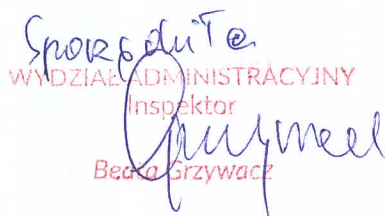 Sporządziła
WYDZIAŁ ADMINISTRACYJNY
Inspektor
Grzywacz
Beata Grzywacz